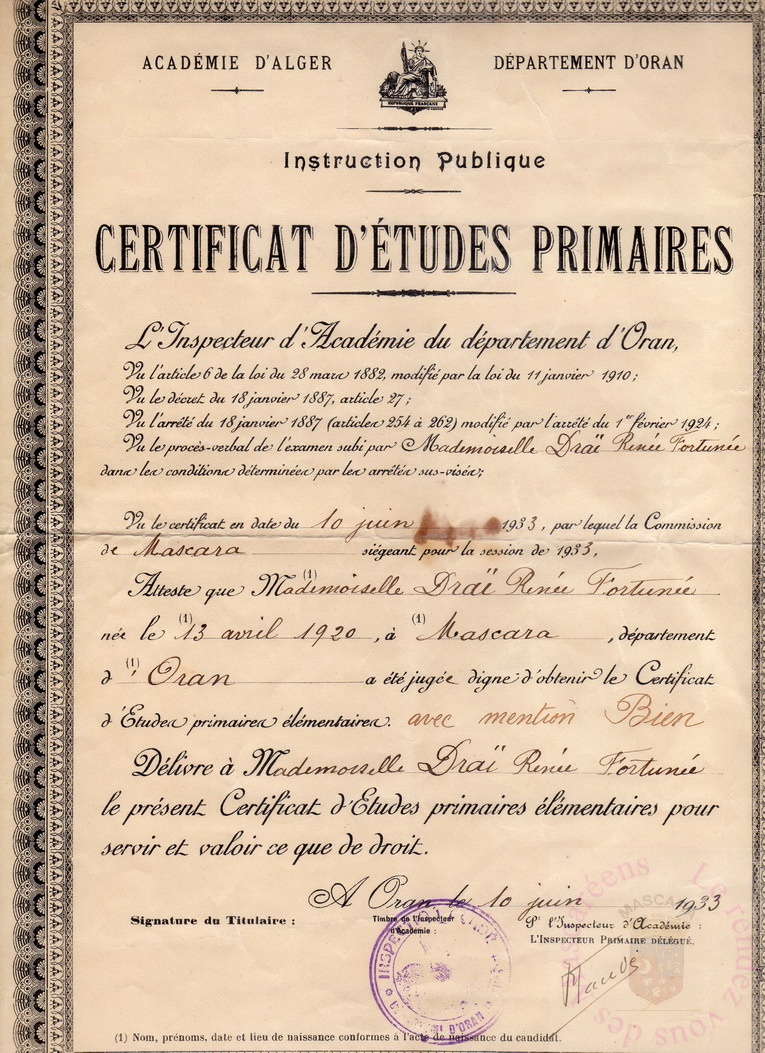 ACADÉMIE D'ALGER
DÉPARTEMENT D'ORAN
RÉPUBLIQUE FRANÇAISE
Instruction Publique
CERTIFICAT D'ÉTUDES PRIMAIRES
L'Inspecteur d'Académie du département d'Oran,
Vu l'article 6 de la loi du 28 mars 1882, modifié par la loi du 11 janvier 1910;
Vu le décret du 18 janvier 1887, article 27;
Vu l'arrêté du 18 janvier 1887 (articles 254 à 262) modifié par l'arrêté du 1er février 1924;
Vu le procès-verbal de l'examen subi par Mademoiselle Draï Renée Fortunée
dans les conditions déterminées par les arrêtés sus-visés;
Vu le certificat en date du 10 juin 1933, par lequel la Commission
de Mascara siégeant pour la session de 1933,
Atteste que Mademoiselle (1) Draï Renée Fortunée
née le (1) 13 avril 1920, à (1) Mascara, département
d' (1) Oran a été jugée digne d'obtenir le Certificat
d'Études primaires élémentaires. avec mention Bien
Délivre à Mademoiselle Draï Renée Fortunée
le présent Certificat d'Études primaires élémentaires pour
servir et valoir ce que de droit.
A Oran le 10 juin 1933
Signature du Titulaire :
Timbre de l'Inspecteur
d'Académie :
Pr l'Inspecteur d'Académie :
L'INSPECTEUR PRIMAIRE DÉLÉGUÉ.
INSPECTION D'ORAN
MASCARA
Le rendez vous des
(1) Nom, prénoms, date et lieu de naissance conformes à l'acte de naissance du candidat.